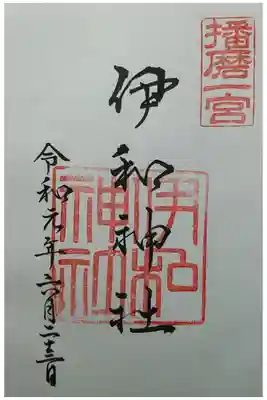 播磨一宮
伊和神社
伊和神社
令和元年六月二十三日